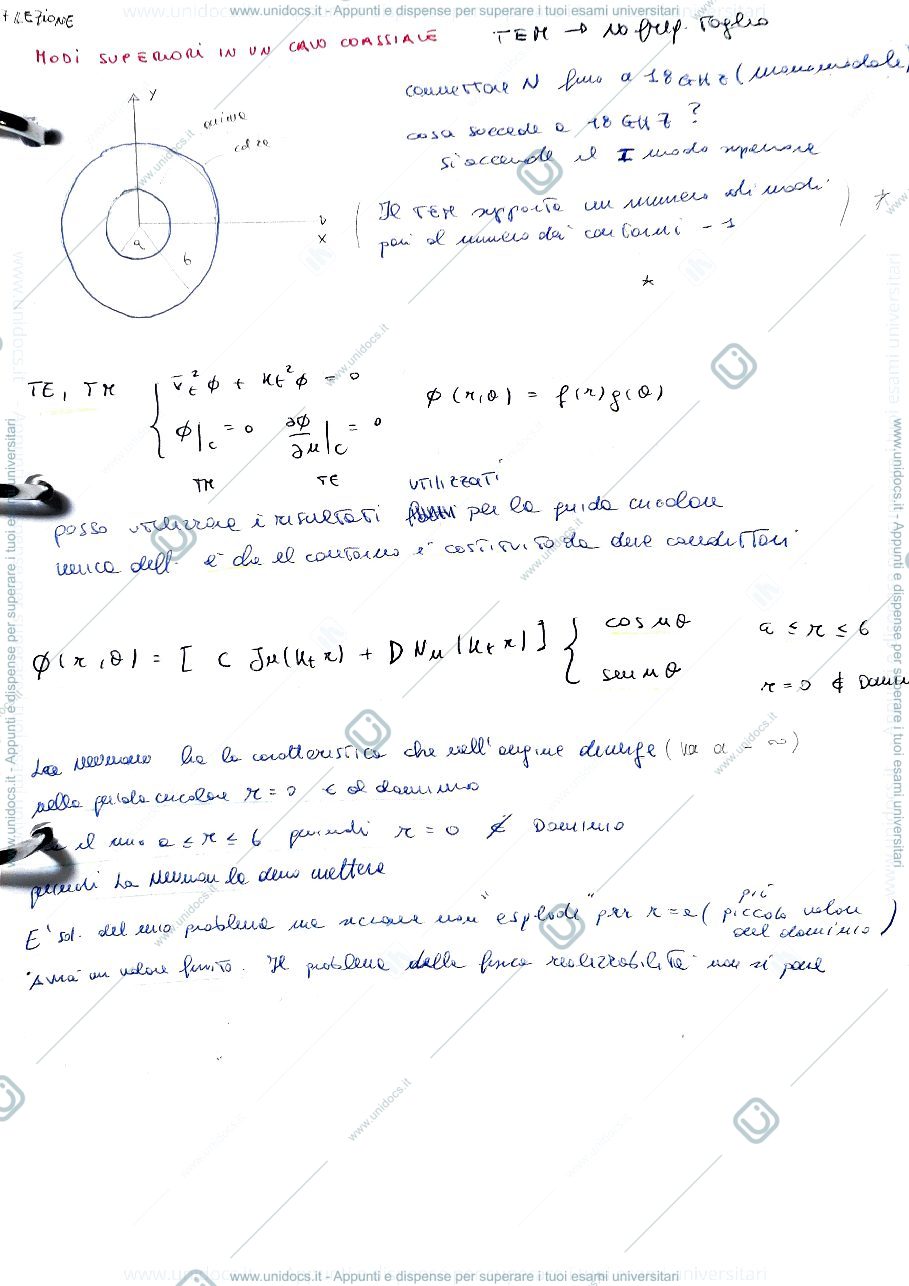 www.unidocs.it - Appunti e dispense per superare i tuoi esami universitari
LEZIONE
MODI SUPERIORI IN UN CAVO COASSIALE
TEM → NO freq. Taglio
connettore N fino a 18 GHz (monomodale)
cosa succede a 18 GHz ?
si accende il I modo superiore
( Il TEM supporta un numero di modi
pari al numero dei contorni - 1 ) *
*
y
anima
x
a
b
TE, TM
∇t² φ + Kt² φ = 0
φ|c = 0   ∂φ/∂n|c = 0
TM   TE
φ(r,θ) = f(r)g(θ)
utilizzati
posso utilizzare i risultati per la guida circolare
unica diff. è che il contorno è costituito da due conduttori
φ(r,θ) = [ C Jn(Kt r) + D Nn(Kt r) ] { cos nθ
sen nθ
a ≤ r ≤ b
r = 0 ∉ Domin
La Neumann ha la caratteristica che nell'origine diverge (va a - ∞)
nella guida circolare r = 0 ∈ al dominio
il mio a ≤ r ≤ b quindi r = 0 ∉ Dominio
quindi la Neuman la devo mettere
E' sol. del mio problema ma siccome non "esplode" per r = a ( più piccolo valore del dominio )
Avrà un valore finito. Il problema della fisica realizzabilità non si pone
www.unidocs.it - Appunti e dispense per superare i tuoi esami universitari